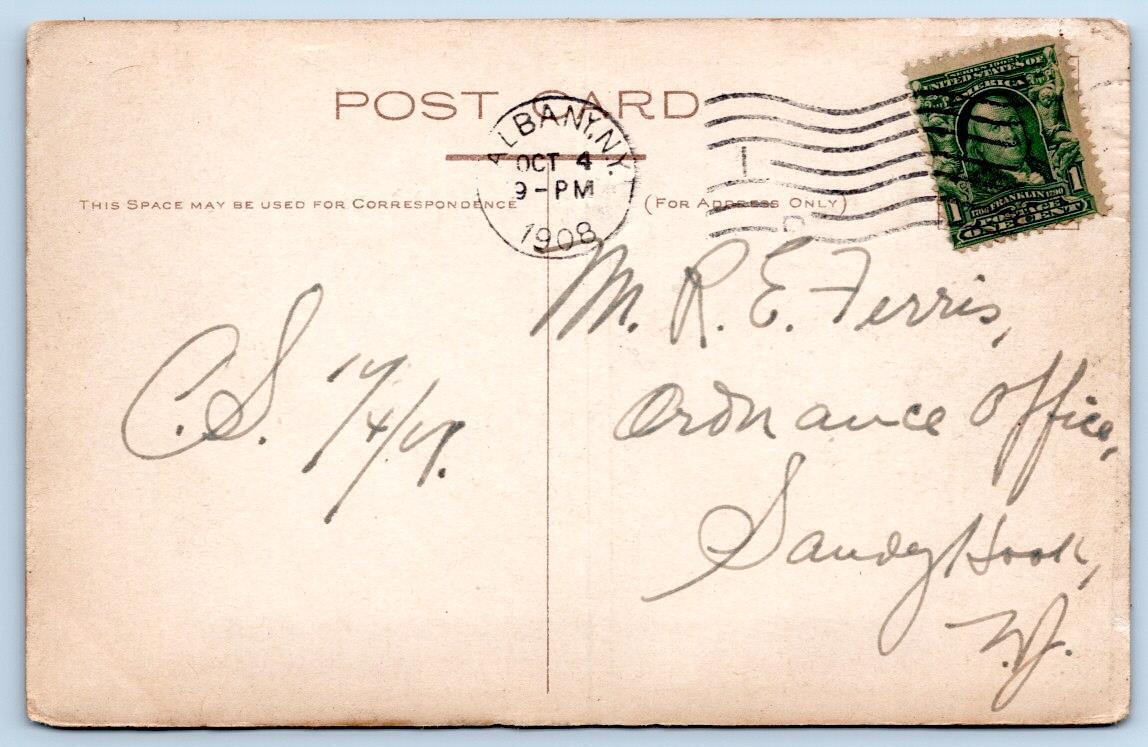 POST CARD
ALBANY, N.Y.
OCT 4
9-PM
1908
SERIES 1902
UNITED STATES OF
AMERICA
1706 FRANKLIN 1790
POSTAGE
1 1
ONE CENT
THIS SPACE MAY BE USED FOR CORRESPONDENCE
(FOR ADDRESS ONLY)
M. R. E. Ferris,
Ordnance Office,
Sandy Hook,
N.J.
C.S.